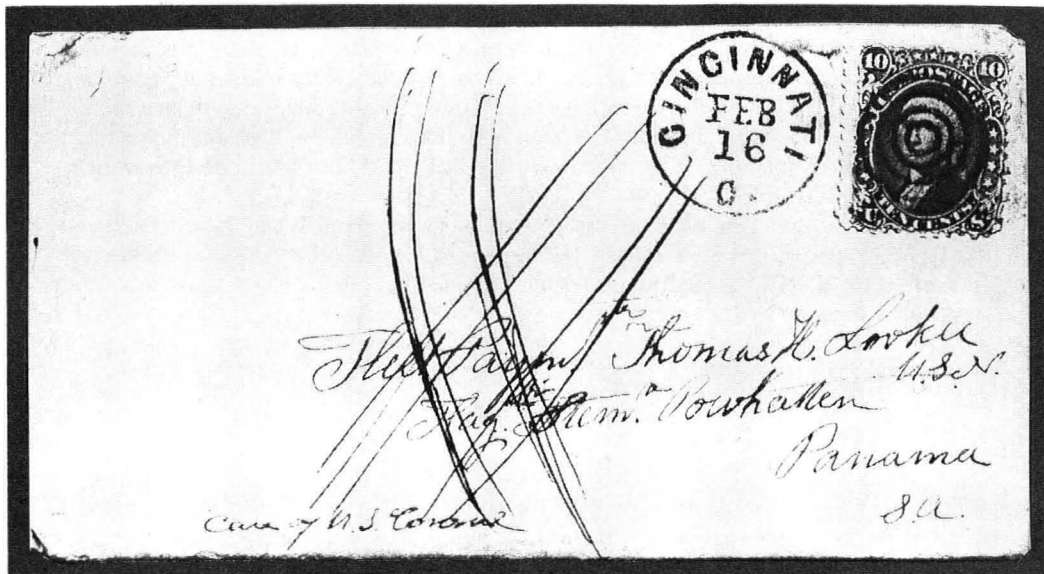 CINCINNATI
FEB
16
O.
10 10
U.S. POSTAGE
TEN CENTS
Fleet Paymr Thomas H. Looker
U.S.N.
Flag Stemr Powhatten
Panama
S.A.
Care of U.S. Consul